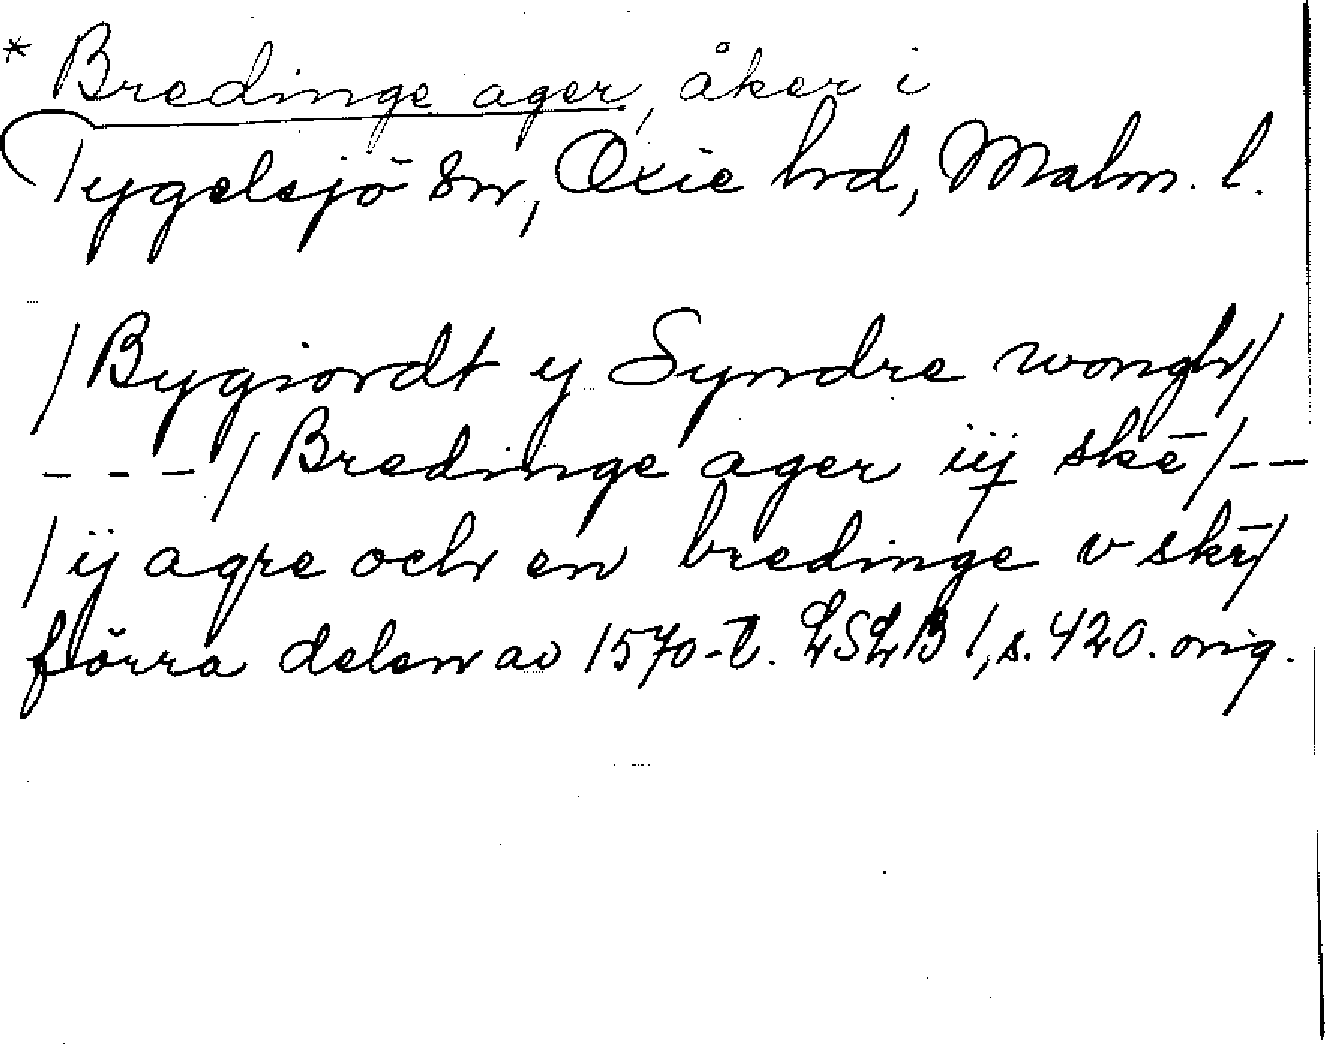 * Bredinge ager, åker i
Tygelsjö sn, Oxie hd, Malm. l.
/Bygiordt y Syndre wongh/
---/Bredinge ager iij skē/--
/ij agre och en bredinge v skē/
förra delen av 1570-t. LSLB 1, s. 420. orig.